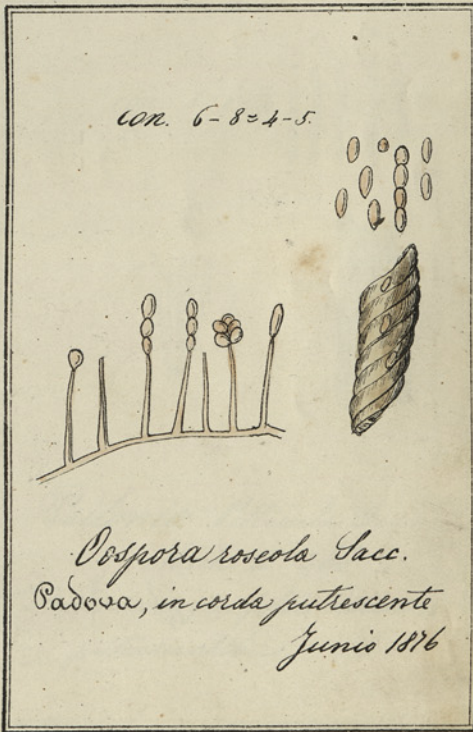 con. 6-8=4-5.
Oospora roseola Sacc.
Padova, in corda putrescente
Junio 1876